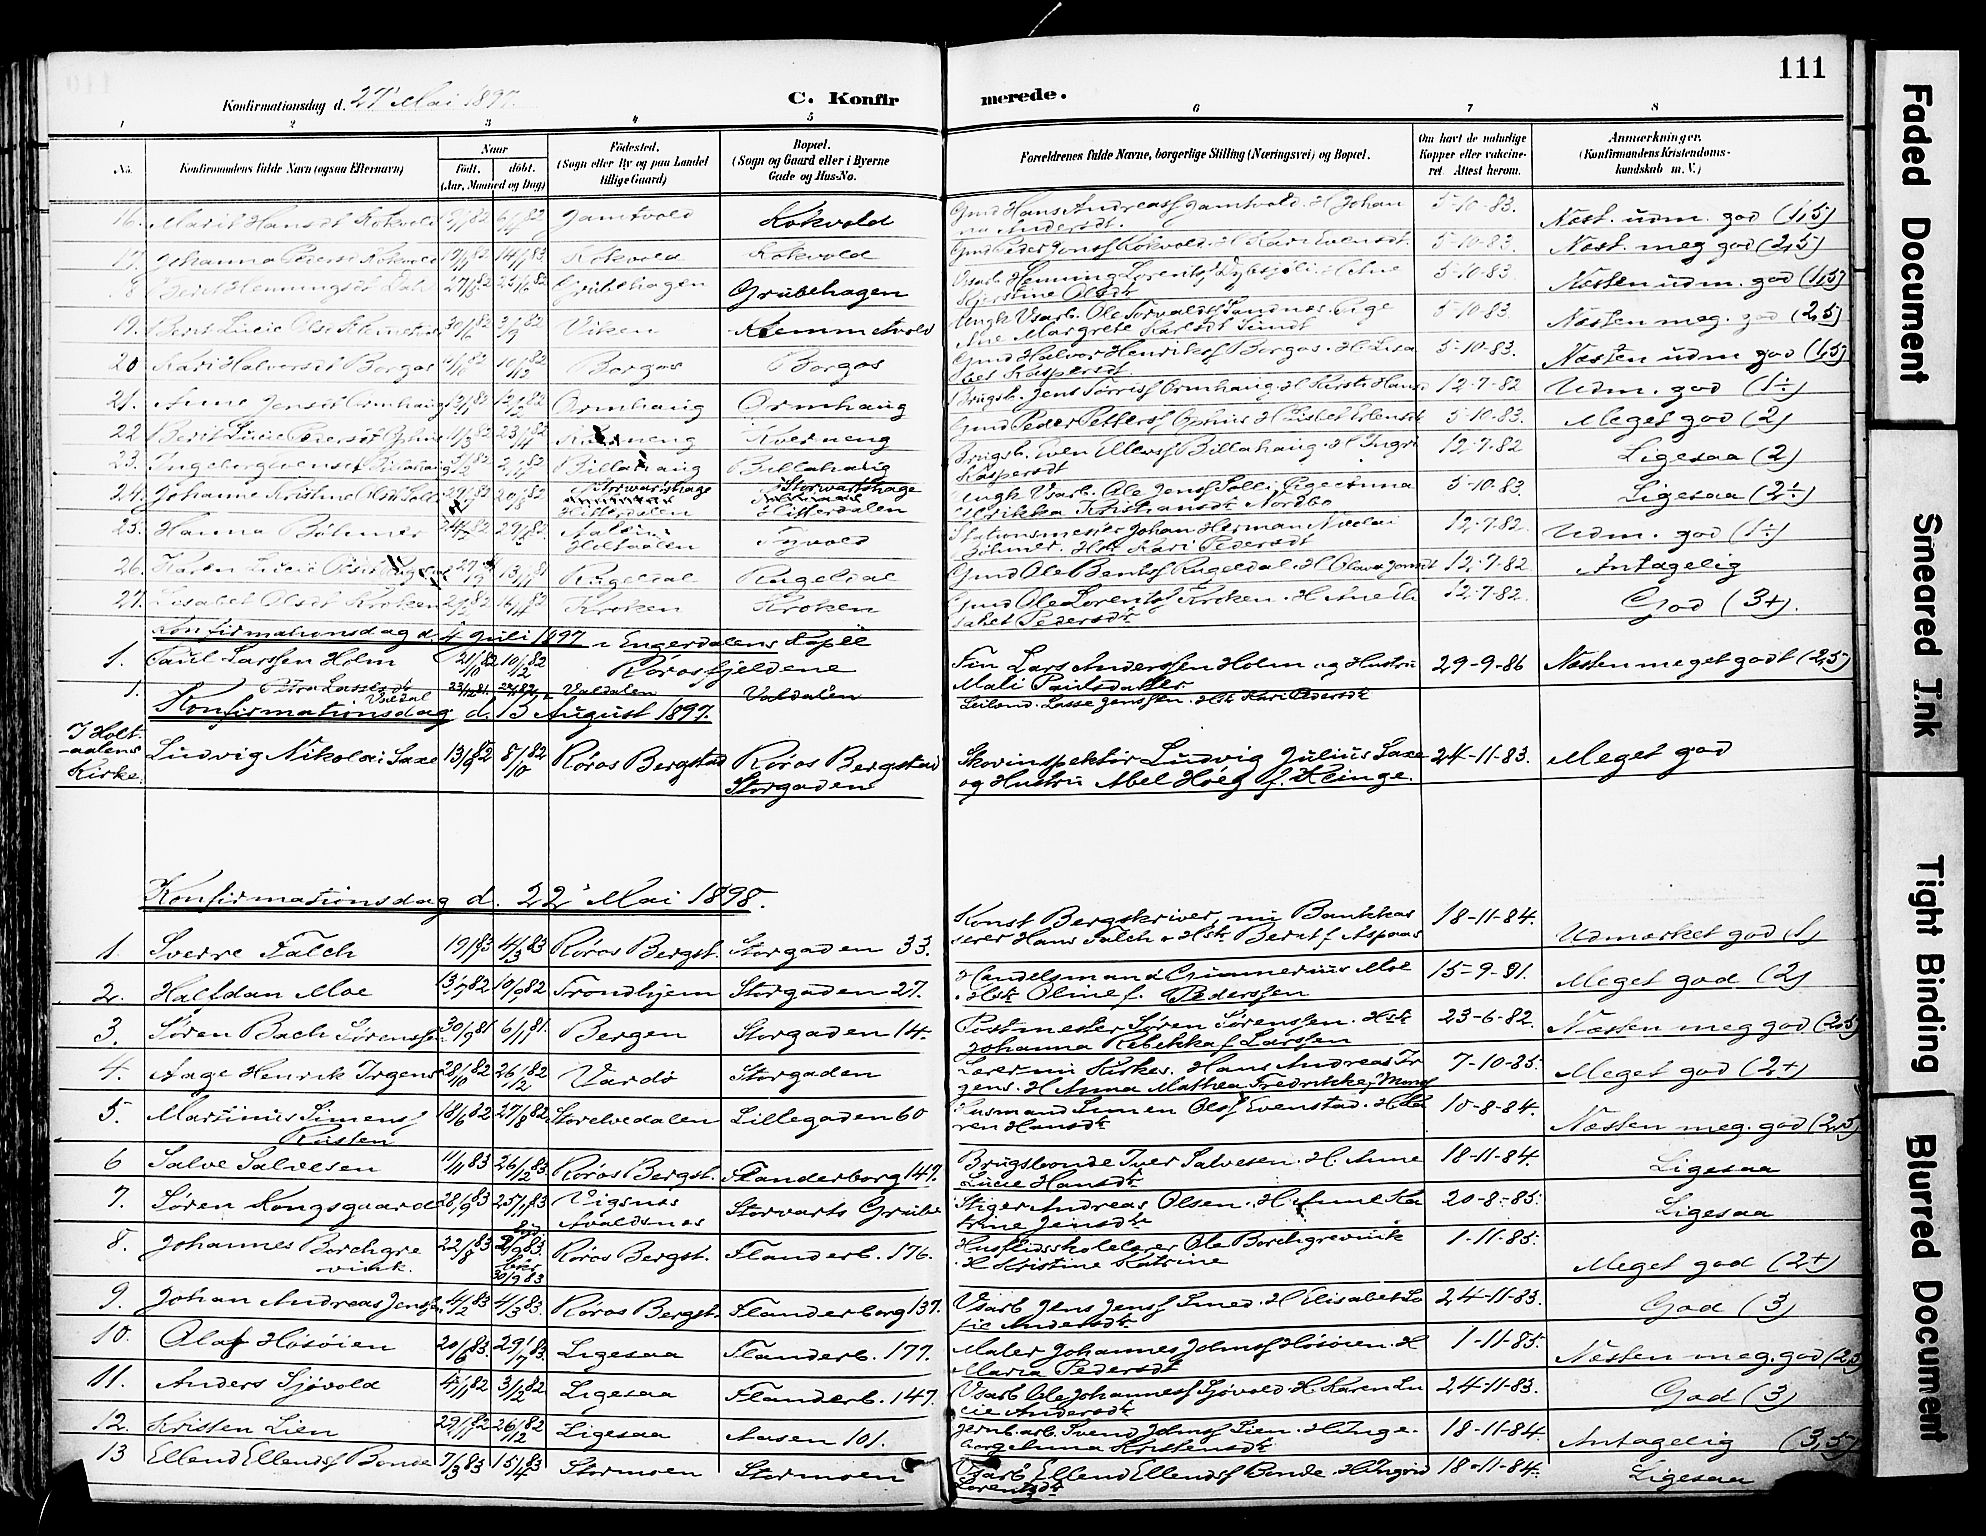 111
Konfirmationsdag d. 27' Mai 1897.
C. Konfirmerede.
1 2 3 4 5 6 7 8
No.
Konfirmandens fulde Navn (ogsaa Efternavn)
Naar
født. døbt.
(Aar, Maaned og Dag)
Fødested.
(Sogn eller By og paa Landet
tillige Gaard)
Bopæl.
(Sogn og Gaard eller i Byerne
Gade og Hus-No.
Forældrenes fulde Navne, borgerlige Stilling (Næringsvei) og Bopæl.
Om havt de naturlige
Kopper eller vaccine-
ret Attest herom.
Anmærkninger.
(Konfirmandens Kristendoms-
kundskab m. V.)
16. Marit Hansdt Kokvold Jamtvold Kokvold Gmd Hans Andreass Jamtvold. H Johan
na Andersdt. 5-10-83. Næst. udm. god (1,5)
17. Johanna Pedersdt Kokvold Kokvold Kokvold Gmd Peder Jonss Kokvold. H Kari Evensdt. 5-10-83. Næst. meg god (2,5)
18 Berit Henningsdt Grubehagen Grubehagen Henning Lorents H Ane
Kjerstine Olsdt 5-10-83. Næsten udm. god (1,5)
19. Berit Lucie Olsdt 30/6 82 3/9 82 Viken Klemmetvold Ungk Vsarb. Ole Torvalds Sandnes. Pige
Ane Margrete Karlsdt Sundt 5-10-83. Næsten meg. god (2,5)
20 Kari Halversdt Borgos Borgos Borgos Gmd Halvor Henriks Borgos. H Lisa
bet Kaspersdt 5-10-83. Næsten udm god (1,5)
21. Anne Jensdt Ormhaug Ormhaug Ormhaug Brugsb. Jens Ormhaug. H Kirsti Hansd 12-7-82 Udm. god (1÷)
22 Berit Lucie Pedersdt Kverneng Kverneng Gmd Peder Petters H Lisbet Erlensdt 5-10-83. Meget god (2)
23. Ingeborg Evensdt Billahaug Billahaug Billahaug Brugsb. Even Ellevs Billahaug. H Ingri
Kaspersdt 12-7-82 Ligesaa (2)
24. Johanne Kristine Olsdt Solli Storwartshage
Hitterdalen Storwartshage
Hitterdalen Ungk Vsarb. Ole Jenss Solli. Pige Gunna
Ulrikka Kristiansdt Nordbo 5-10-83. Ligesaa (2÷)
25. Hanna Böhmer Aalen
Hitterdalen Tyvold Stationsmester Johan Herman Nicolai
Böhmer. Hst Kari Pedersdt 12-7-82. Udm. god (1÷)
26. Karen Lucie Olsdt Rugeldal Rugeldal Gmd Ole Bents Rugeldal. H Olava Jonsdt 12-7-82. Antagelig
27. Lisabet Olsdt Kroken Kroken Kroken Gmd Ole Lorents Kroken. H Ane Eli
sabet Pedersdt 12-7-82. God (3+).
Konfirmationsdag d. 4 Juli 1897 i Engerdalens Kapel
1. Paul Larssen Holm 21/10 82 10/2 82 Rörosfjeldene Fin Lars Anderssen Holm og Hustru
Mali Paulsdatter 29-9-86 Næsten meget godt (2,5)
1. Lassesdt
Valdal Valdalen Valdalen Leilend. Lasse Jenssen. Hst Kari Pedersdt
Konfirmationsdag d. 13 August 1897.
I Holt-
aalens
Kirke. Ludvig Nikolai Saxe 13/9 82 8/10 82 Röros Bergstad Röros Bergstad
Storgaden Skovinspektör Ludvig Julius Saxe
og Hustru Abel Höeg f. Klinge. 24-11-83. Meget god
Konfirmationsdag d. 22' Mai 1898.
1. Sverre Falch 19/1 83 4/3 83 Röros Bergst. Storgaden 33. Konst Bergskriver, nu Bankkas
serer Hans Falch & Hst. Berat f Aspaas 18-11-84. Udmærket god (1)
2. Halfdan Moe 13/7 82 10/9 82 Trondhjem Storgaden 27. Handelsmand Gunnerius Moe
Hst Oline f. Pederssen 15-9-91. Meget god (2)
3. Sören Bach Sörenssen 30/9 81 6/11 81. Bergen Storgaden 14. Postmester Sören Sörenssen. Hst
Johanna Rebekka f Larssen 23-6-82. Næsten meg god (2,5)
4. Aage Henrik Irgens 28/10 82 26/12 82 Vardö Storgaden Lærer nu Kirkes. Hans Andreas Ir
gens. H Anna Mathea Fredrikke 7-10-85. Meget god (2+)
5. Martinus Simens
Rusten 18/6 82 27/8 82 Storelvedalen Lillegaden 60 Husmand Simen Ols Evenstad. H Ka
ren Hansdt 10-8-84. Næsten meg. god (2,5)
6 Salve Salvesen 11/11 83 26/12 83 Röros Bergst. Flanderborg 147. Brugsbonde Iver Salvesen. H. Anne
Lucie Hansdt 18-11-84. Ligesaa
7. Sören Kongsgaard 28/9 83 25/11 83 Vigsnes
Avaldsnes Storvarts Grube Stiger Andreas Olsen. H Anne Ka
trine Jensdt 20-8-85. Ligesaa
8. Johannes Borchgre
vink. 22/8 83 30/9 83 Röros Bergst. Flanderb. 176. Husflidsskolelærer Ole Borchgrevink
H Kristine Katrine 1-11-85. Meget god (2+)
9. Johan Andreas Jenssen 4/2 83 4/3 83. Röros Bergst. Flanderborg 137. Vsarb Jens Jenss Smed. H Elisabet So
fie Andersdt. 24-11-83. God (3)
10. Olaf Hösöien 20/6 83. 29/7 83. Ligesaa Flanderb. 177. Maler Johannes Johnss Hösöien. H
Maria Pedersdt 1-11-85. Næsten meg. god (2,5)
11. Anders Sjövold 4/11 82 3/12 82 Ligesaa Flanderb. 147. Vsarb Ole Johanness Sjövold H. Karen Lu
cie Andersdt. 24-11-83. God (3)
12. Kristen Lien 29/11 82 26/12 82 Ligesaa Aasen 101. Jernb.arb. Svend Johns Lien. H Inge-
borg Anna Kristensdt 18-11-84. Antagelig (3,5)
13 Ellend Ellends Bonde 7/3 83 15/4 83 Stormoen Stormoen Vsarb Ellend Ellends Bonde. H Ingrid
Lorentsdt 18-11-84. Ligesaa
Faded Document
Smeared Ink
Tight Binding
Blurred Document